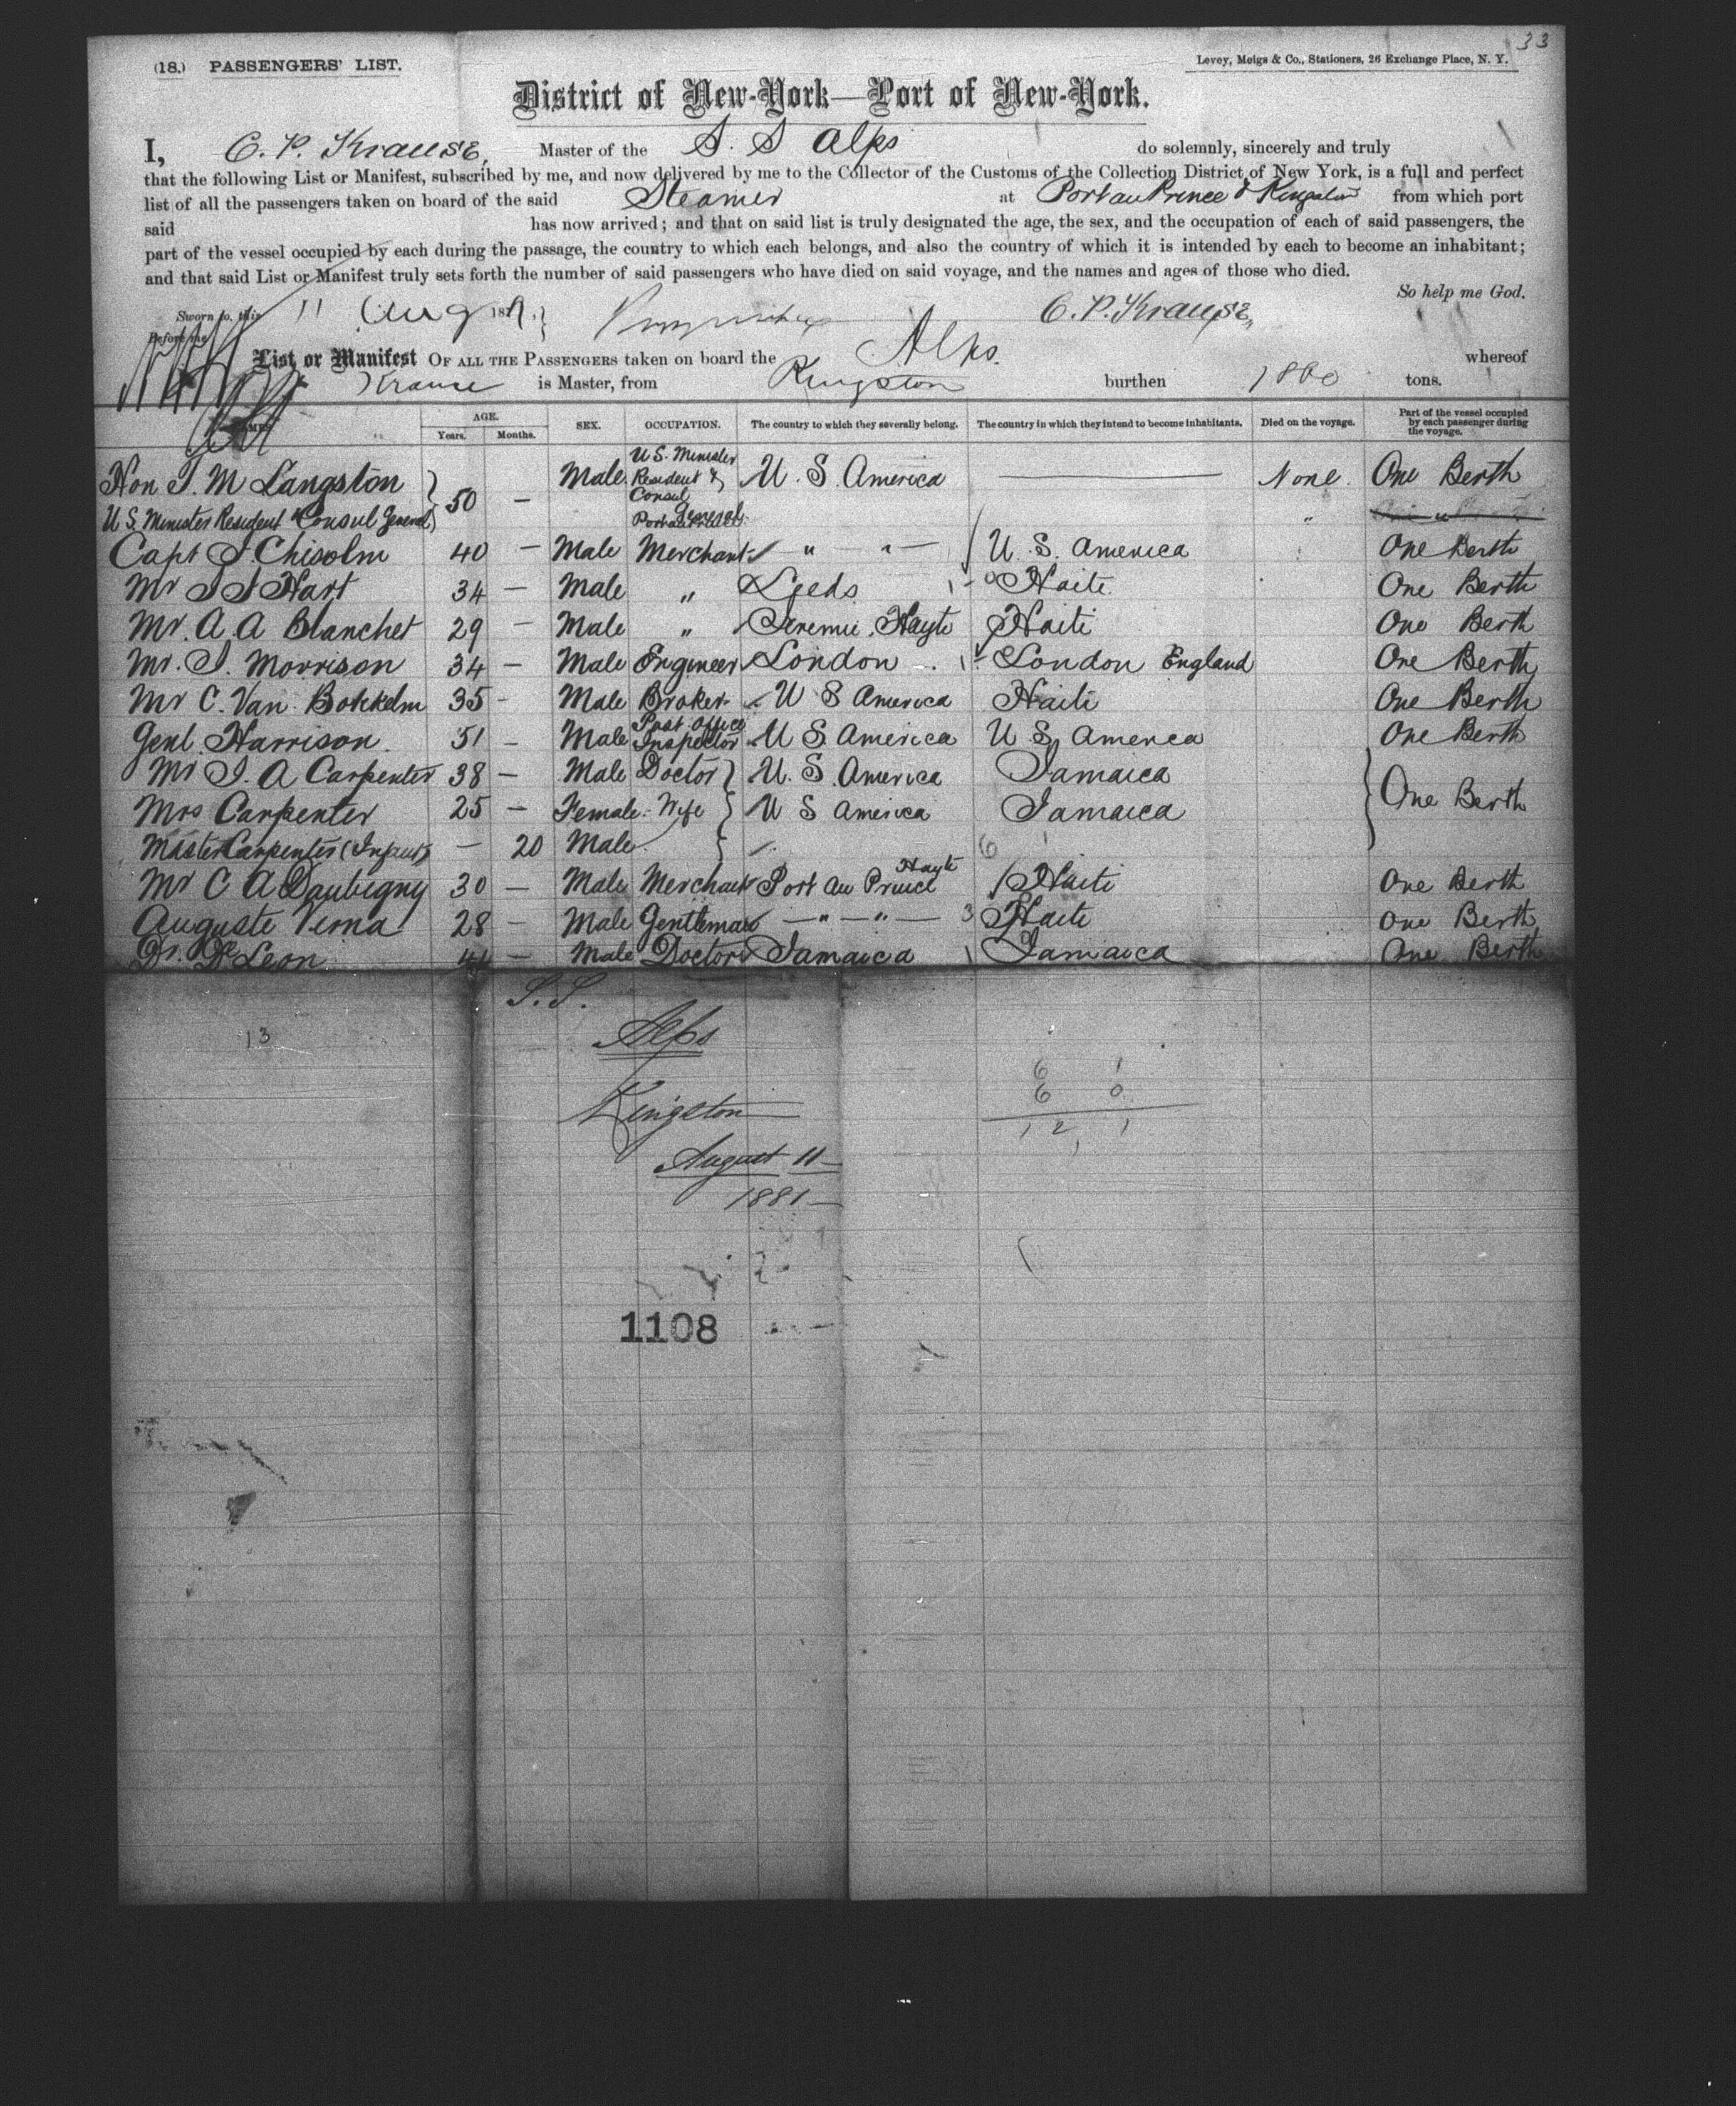 33
(18.) PASSENGERS' LIST.
Levey, Meigs & Co., Stationers, 26 Exchange Place, N. Y.
District of New-York—Port of New-York.
I, C. P. Krause, Master of the S. S Alps do solemnly, sincerely and truly
that the following List or Manifest, subscribed by me, and now delivered by me to the Collector of the Customs of the Collection District of New York, is a full and perfect
list of all the passengers taken on board of the said Steamer at Port au Prince & Kingston from which port
said has now arrived; and that on said list is truly designated the age, the sex, and the occupation of each of said passengers, the
part of the vessel occupied by each during the passage, the country to which each belongs, and also the country of which it is intended by each to become an inhabitant;
and that said List or Manifest truly sets forth the number of said passengers who have died on said voyage, and the names and ages of those who died.
So help me God.
Sworn to, this 11 Aug 187 C. P. Krause
Before me
List or Manifest OF ALL THE PASSENGERS taken on board the Alps. whereof
Krause is Master, from Kingston burthen 1800 tons.
NAMES AGE. Years. Months. SEX. OCCUPATION. The country to which they severally belong. The country in which they intend to become inhabitants. Died on the voyage. Part of the vessel occupied by each passenger during the voyage.
Hon J. M Langston 50 — Male U S. Minister Resident & Consul General Port au Prince U. S. America — None. One Berth
U S. Minister Resident & Consul General "
Capt J. Chisolm 40 — Male Merchant — " — " — U. S. America One Berth
Mr J J Hart 34 — Male " Leeds Haite One Berth
Mr. A. A Blanchet 29 — Male " Jeremie, Hayte Haiti One Berth
Mr. J. Morrison 34 — Male Engineer London London England One Berth
Mr C. Van Bokkelm 35 - Male Broker U S America Haiti One Berth
Genl. Harrison 51 — Male Post Office Inspector U S. America U S. America One Berth
Mr J. A Carpenter 38 — Male Doctor U. S. America Jamaica One Berth
Mrs Carpenter 25 — Female Wife U S America Jamaica
Master Carpenter (Infant) — 20 Male 6
Mr C A Daubigny 30 — Male Merchant Port au Prince Hayti Haiti One Berth
Auguste Verna 28 — Male Gentleman — " — " — 3 Haiti One Berth
Dr. De Leon 44 — Male Doctor Jamaica 1 Jamaica One Berth
S. S.
Alps
13
6 1
6 0
12 1
1
Kingston
August 11
1881
1108